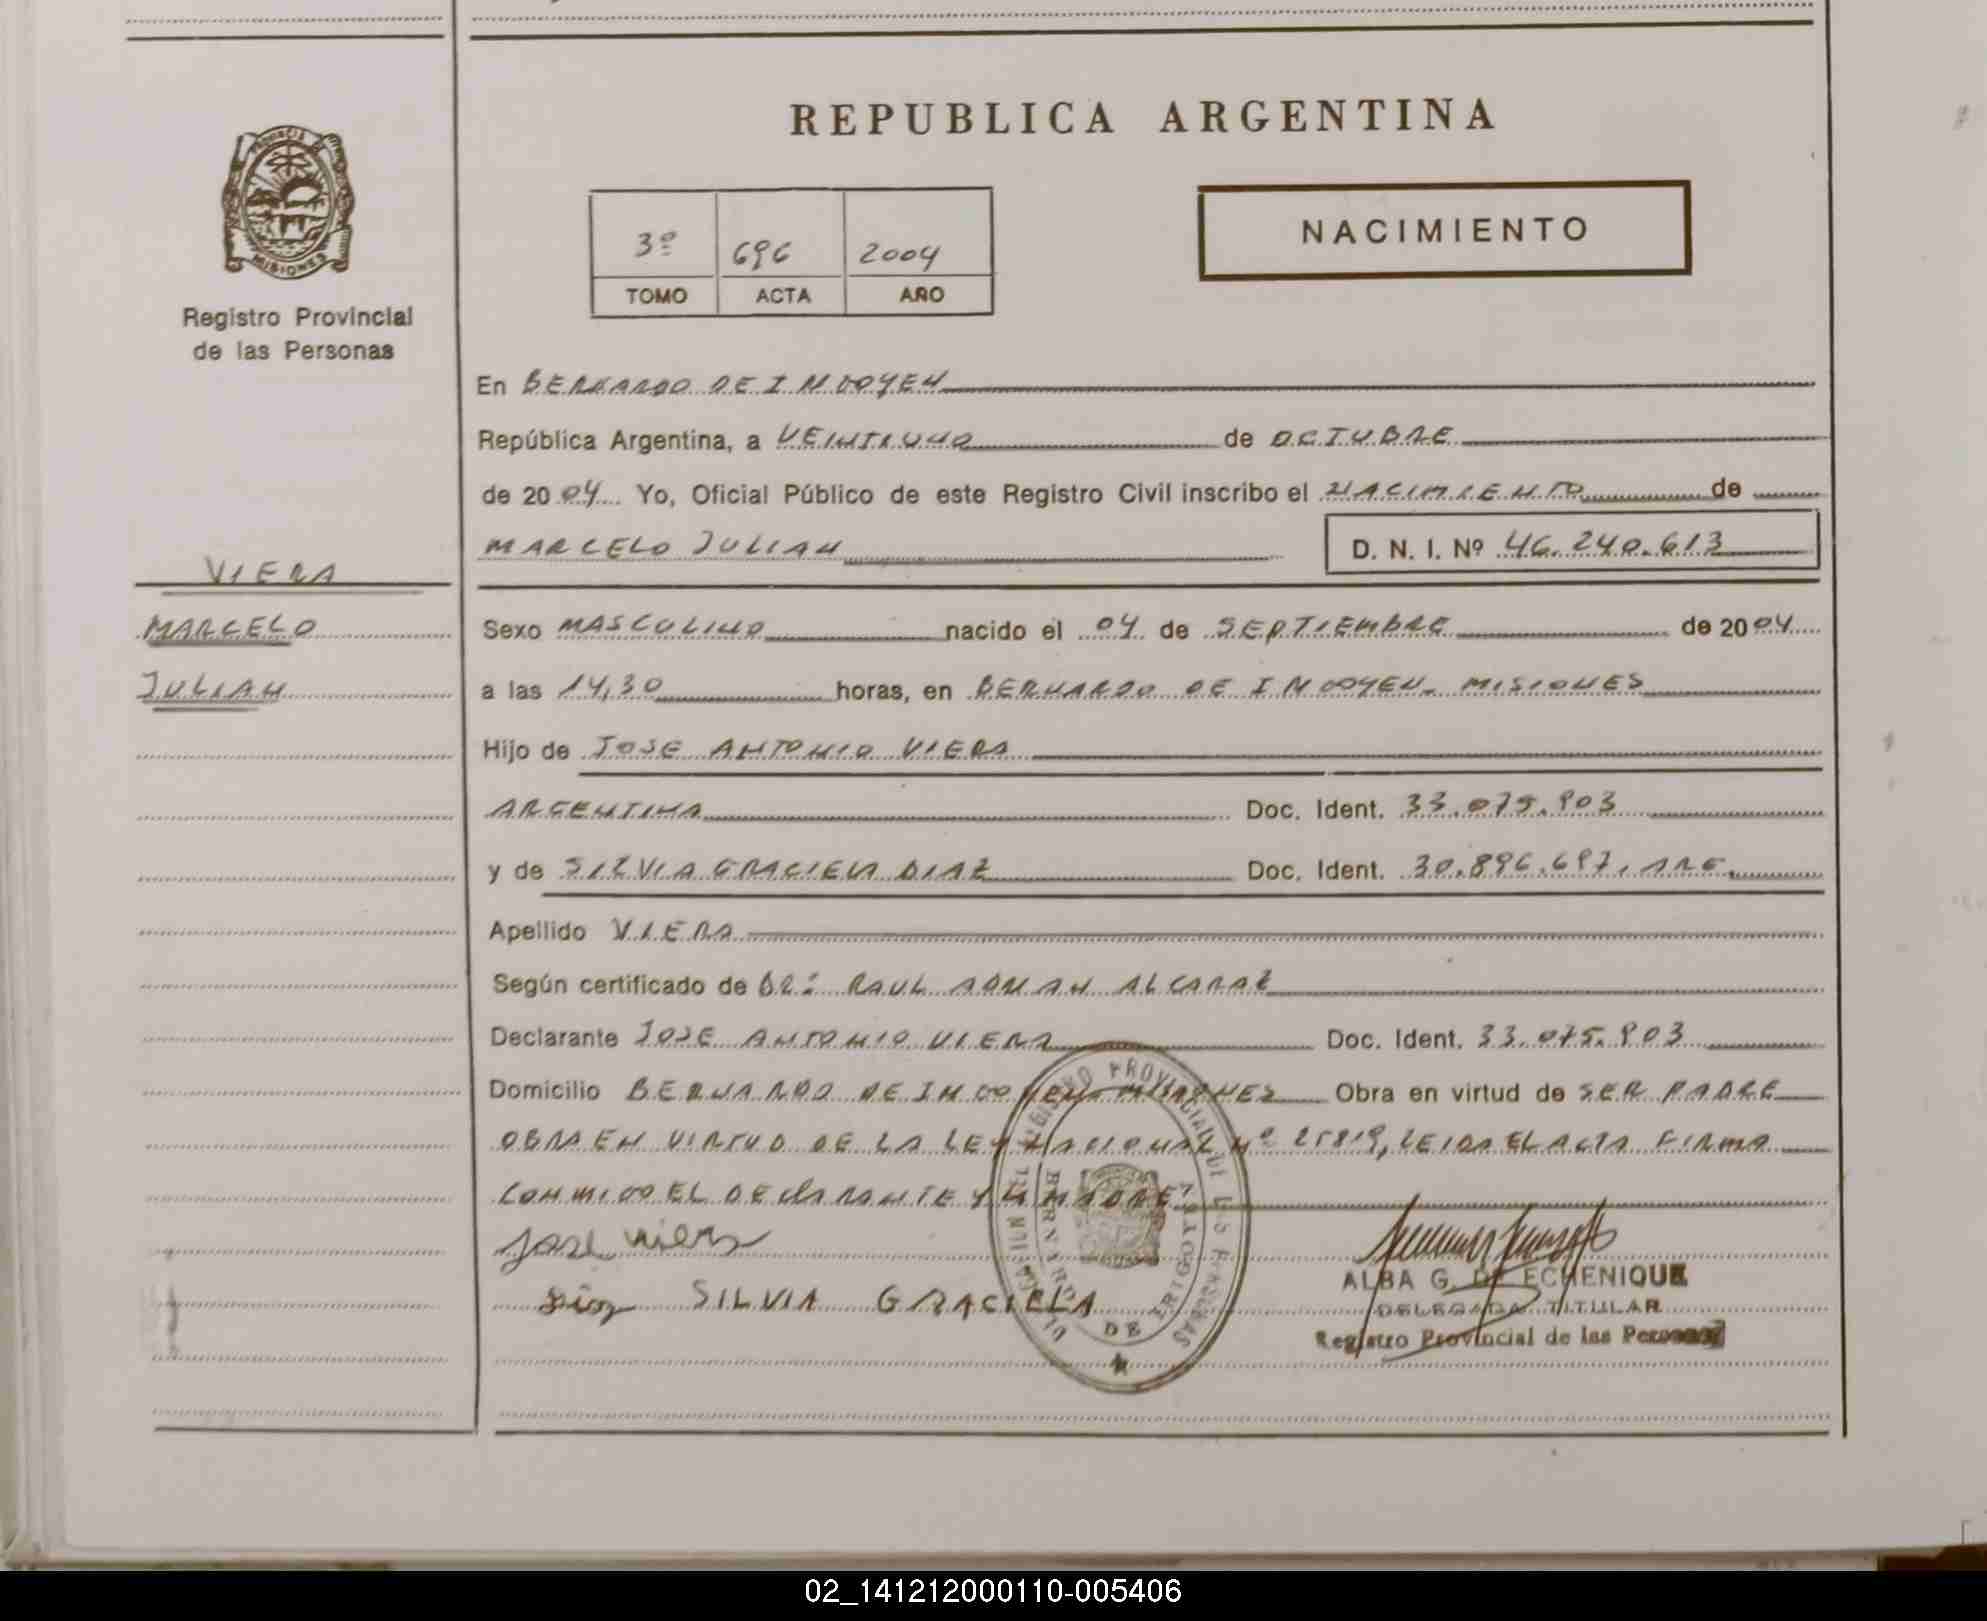 REPUBLICA ARGENTINA
PROVINCIA DE
MISIONES
Registro Provincial
de las Personas
3º 696 2004
TOMO ACTA AÑO
NACIMIENTO
En BERNARDO DE IRIGOYEN
República Argentina, a VEINTIUNO de OCTUBRE
de 2004 Yo, Oficial Público de este Registro Civil inscribo el NACIMIENTO de
MARCELO JULIAN D. N. I. Nº 46.240.613
VIERA
MARCELO
JULIAN
Sexo MASCULINO nacido el 04 de SEPTIEMBRE de 2004
a las 14,30 horas, en BERNARDO DE IRIGOYEN. MISIONES
Hijo de JOSE ANTONIO VIERA
ARGENTINA Doc. Ident. 33.075.903
y de SILVIA GRACIELA DIAZ Doc. Ident. 30.896.697, ARG.
Apellido VIERA
Según certificado de DR: RAUL ADRIAN ALCARAZ
Declarante JOSE ANTONIO VIERA Doc. Ident. 33.075.903
Domicilio BERNARDO DE IRIGOYEN MISIONES Obra en virtud de SER PADRE
OBRA EN VIRTUD DE LA LEY NACIONAL Nº 25819, LEIDA EL ACTA FIRMA
CONMIGO EL DECLARANTE Y LA MADRE
Jose Viera
Diaz SILVIA GRACIELA
REGISTRO PROVINCIAL DE LAS PERSONAS
BERNARDO DE IRIGOYEN
ALBA G. DE ECHENIQUE
DELEGADA TITULAR
Registro Provincial de las Personas
02_141212000110-005406